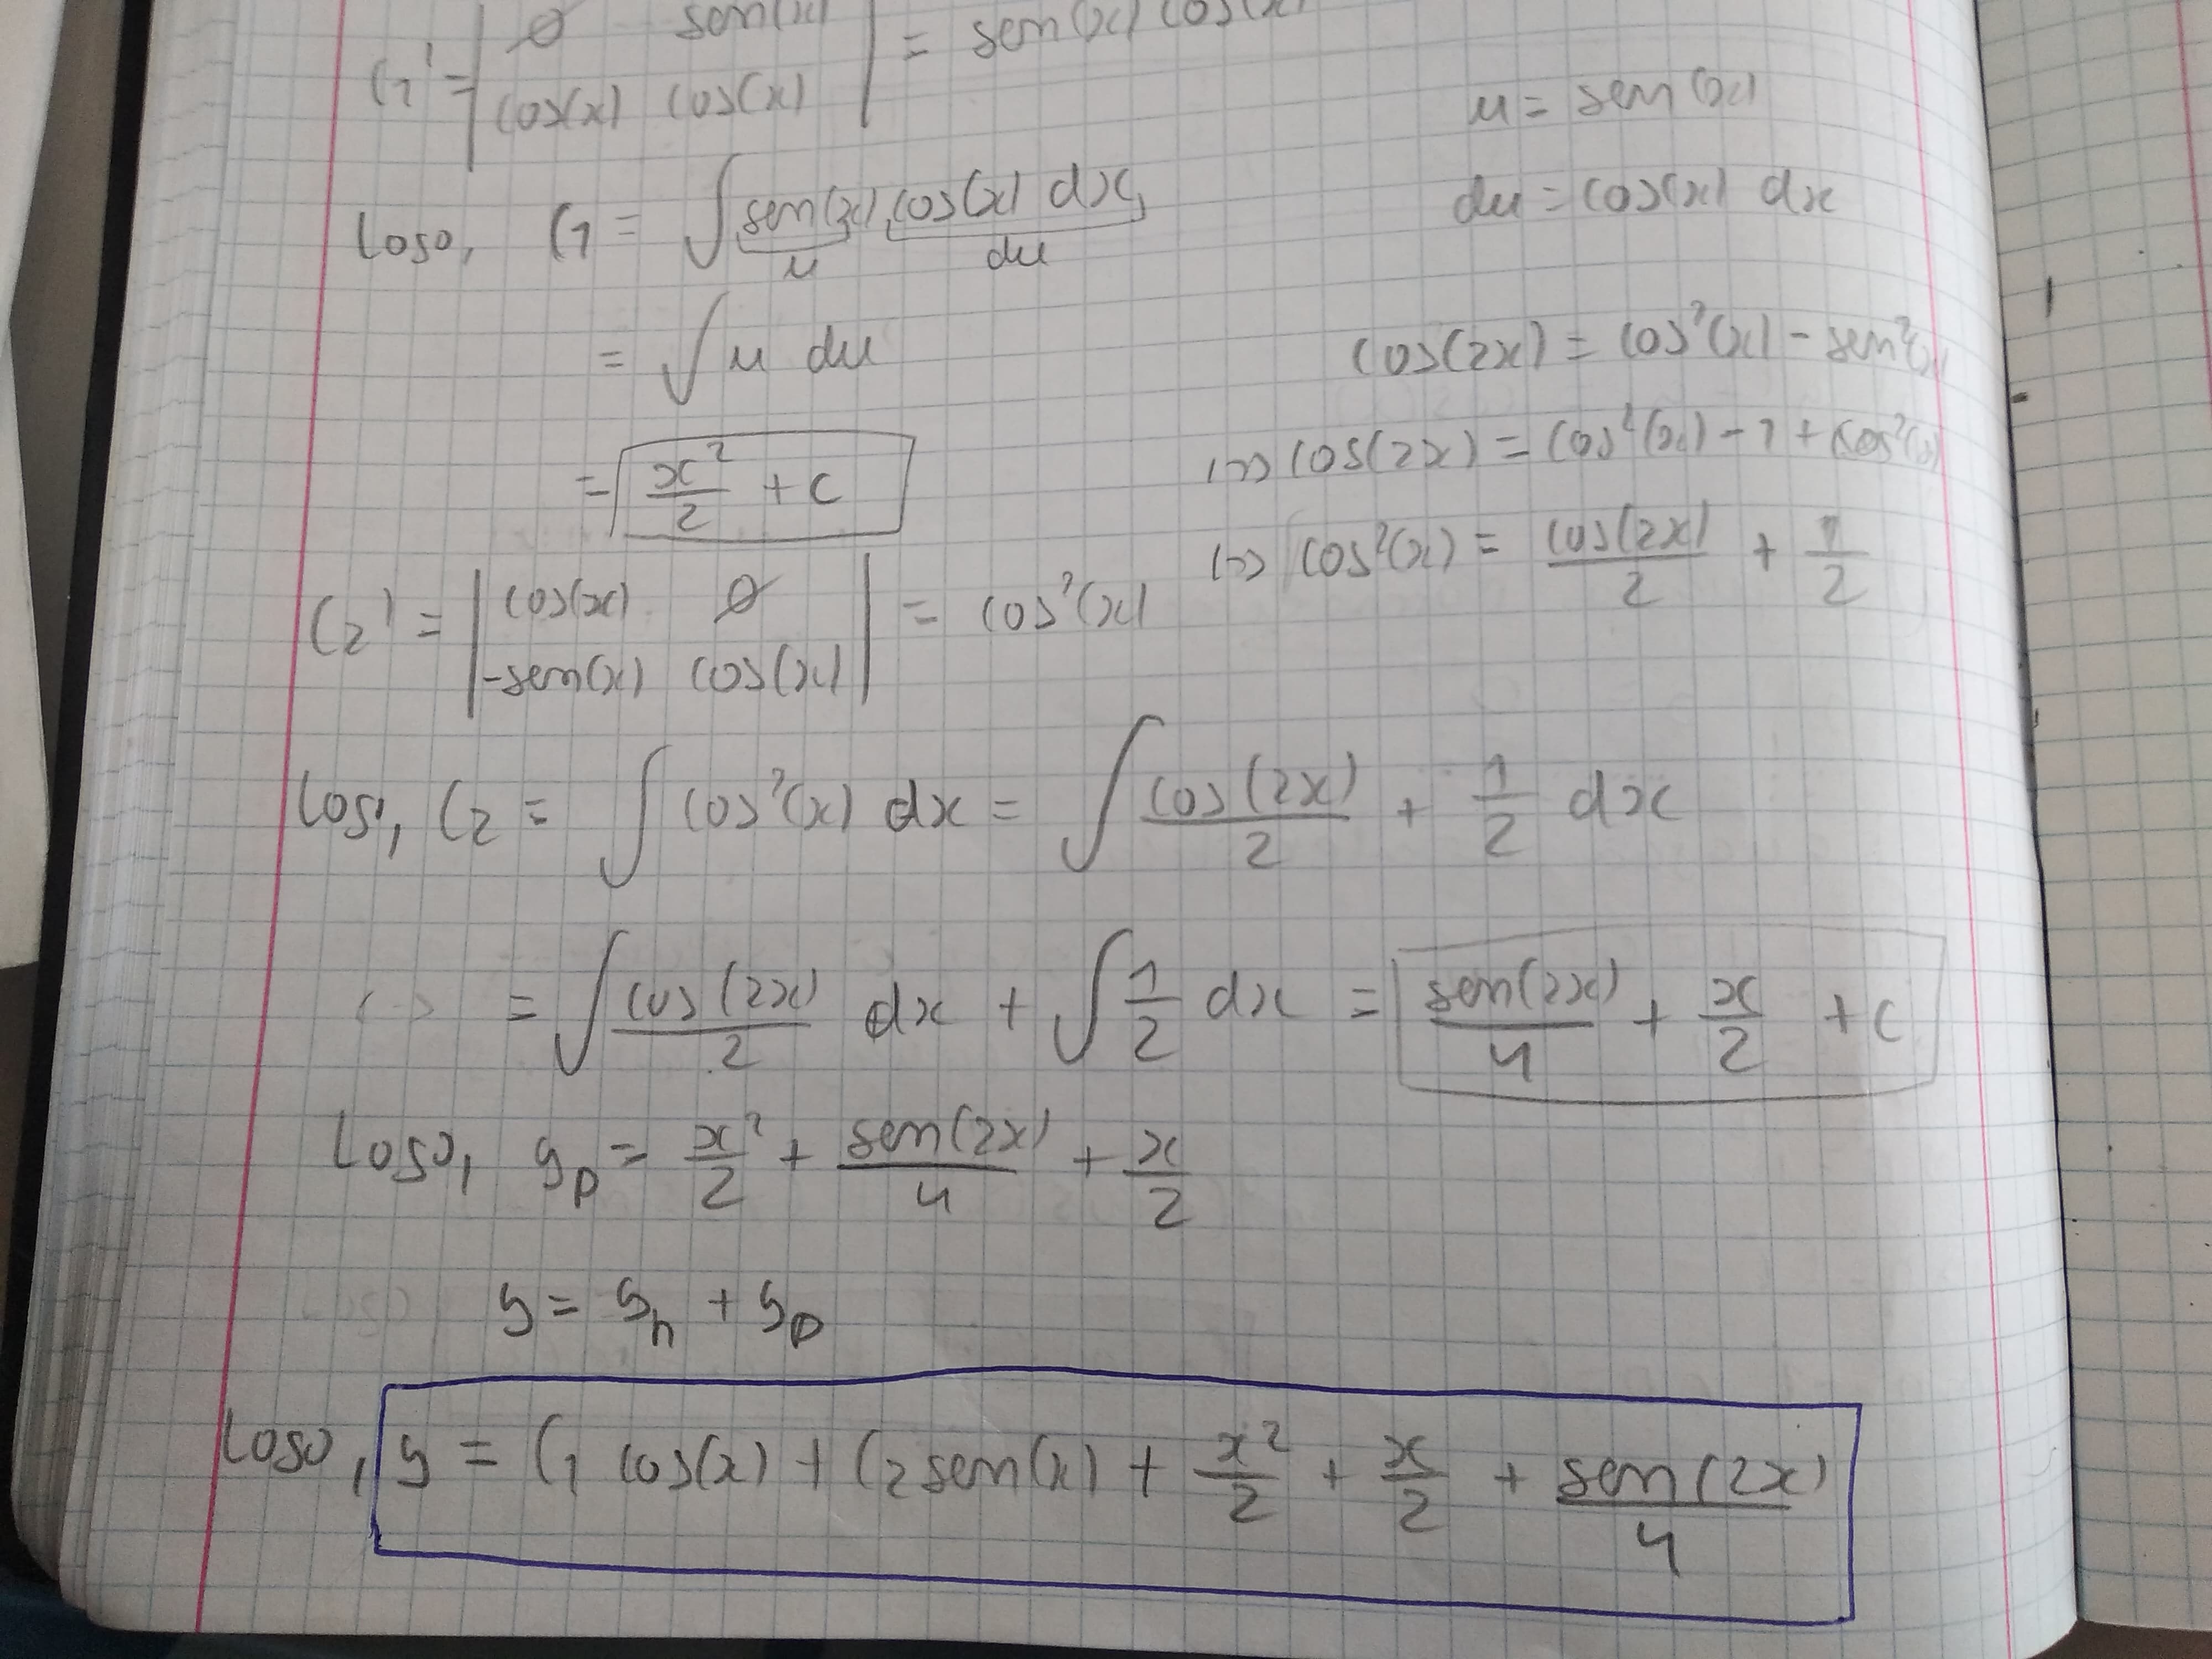 C1' = | 0 sen(x) | = sen(x) cos(x)
| cos(x) cos(x) |
u = sen(x)
Logo, C1 = ∫ sen(x) cos(x) dx
u du
du = cos(x) dx
= ∫ u du
cos(2x) = cos²(x) - sen²(x)
= x²/2 + c
↦ cos(2x) = cos²(x) - 1 + cos²(x)
↦ cos²(x) = cos(2x)/2 + 1/2
C2' = | cos(x) 0 | = cos²(x)
| -sen(x) cos(x) |
Logo, C2 = ∫ cos²(x) dx = ∫ cos(2x)/2 + 1/2 dx
= ∫ cos(2x)/2 dx + ∫ 1/2 dx = sen(2x)/4 + x/2 + c
Logo, yp = x²/2 + sen(2x)/4 + x/2
y = yh + yp
Logo, y = C1 cos(x) + C2 sen(x) + x²/2 + x/2 + sen(2x)/4